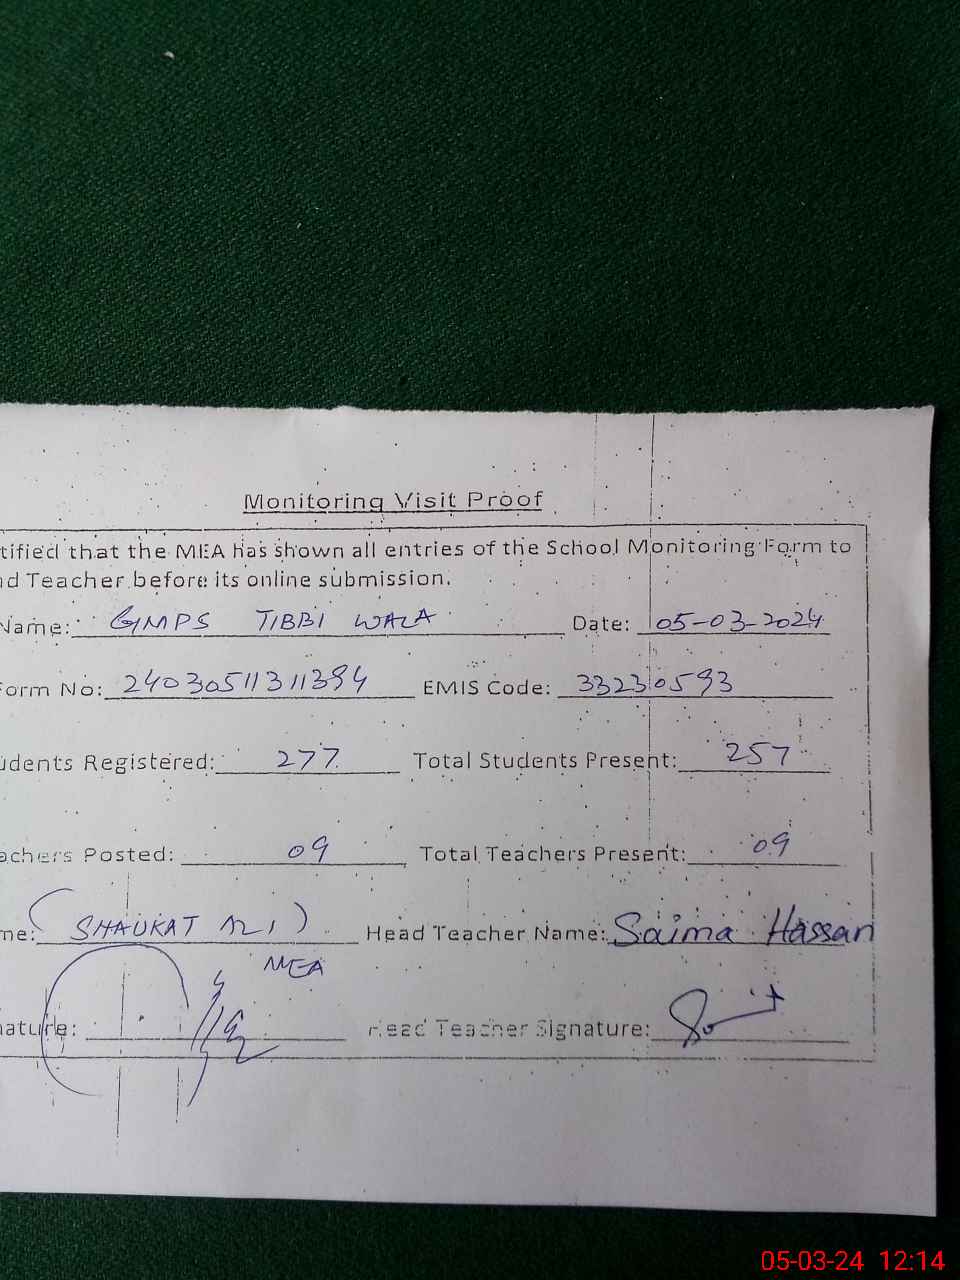 Monitoring Visit Proof
tified that the MEA has shown all entries of the School Monitoring Form to
d Teacher before its online submission.
Name: GMPS TIBBI WALA Date: 05-03-2024
Form No: 24030511311394 EMIS Code: 33230593
udents Registered: 277 Total Students Present: 257
achers Posted: 09 Total Teachers Present: 09
me: (SHAUKAT ALI) Head Teacher Name: Saima Hassan
MEA
nature: Head Teacher Signature:
05-03-24 12:14